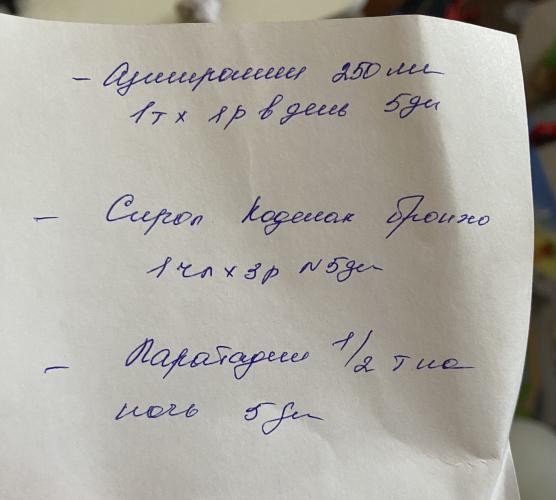 - Азитромин 250 мг
1 т х 1 р в день 5 дн
- Сироп Коделак Бронхо
1 чл х 3 р N 5 дн
- Лоратадин 1/2 т на
ночь 5 дн